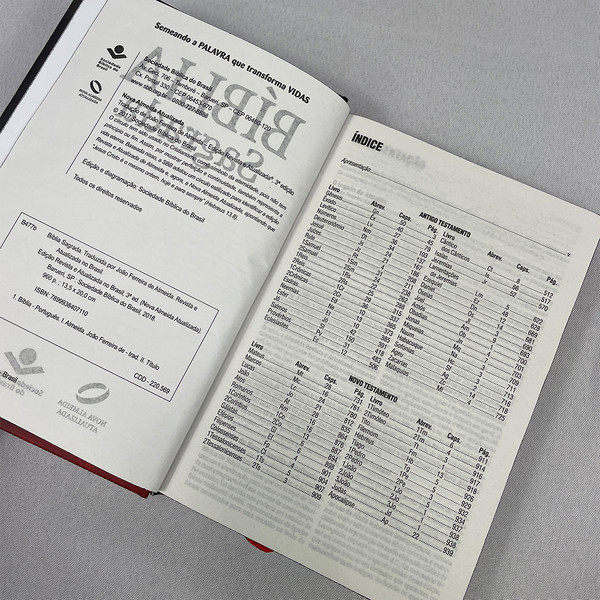 Semeando a PALAVRA que transforma VIDAS
Sociedade Bíblica do Brasil
Av. Ceci, 706 – Tamboré – Barueri, SP – CEP 06460-120
Cx. Postal 330 – CEP 06453-970
www.sbb.org.br – 0800-727-8888
NOVA ALMEIDA
ATUALIZADA
Nova Almeida Atualizada
Tradução de João Ferreira de Almeida – Edição Revista e Atualizada®, 3ª edição
© 2017 Sociedade Bíblica do Brasil
Edição e diagramação: Sociedade Bíblica do Brasil
Todos os direitos reservados
B477b
Bíblia Sagrada. Traduzida por João Ferreira de Almeida. Revista e
Atualizada no Brasil.
Edição Revista e Atualizada no Brasil, 3ª ed. (Nova Almeida Atualizada)
Barueri, SP : Sociedade Bíblica do Brasil, 2018.
960 p. ; 13,5 x 20,0 cm
ISBN: 7899938407110
1. Bíblia - Português. I. Almeida, João Ferreira de - trad. II. Título
CDD : 220.569
ÍNDICE
Apresentação v
ANTIGO TESTAMENTO
Livro Abrev. Caps. Pág.
Gênesis Gn 50 3
Êxodo Êx 40 45
Levítico Lv 27 79
Números Nm 36 103
Deuteronômio Dt 34 137
Josué Js 24 167
Juízes Jz 21 187
Rute Rt 4
1Samuel 1Sm 31
2Samuel 2Sm 24
1Reis 1Rs 22
2Reis 2Rs 25
1Crônicas 1Cr 29
2Crônicas 2Cr 36
Esdras Ed 10
Neemias Ne 13
Ester Et 10
Jó Jó 42 391
Salmos Sl 150 418
Provérbios Pv 31 483
Eclesiastes Ec 12 506
Livro Abrev. Caps. Pág.
Cântico
dos Cânticos Ct 8 512
Isaías Is 66 517
Jeremias Jr 52 570
Lamentações
de Jeremias Lm 5 622
Ezequiel Ez 48 628
Daniel Dn 12 669
Oseias Os 14 682
Joel Jl 3 690
Amós Am 9 693
Obadias Ob 1 700
Jonas Jn 4 701
Miqueias Mq 7 703
Naum Na 3 709
Habacuque Hc 3 711
Sofonias Sf 3 713
Ageu Ag 2 714
Zacarias Zc 14 716
Malaquias Ml 4 725
NOVO TESTAMENTO
Livro Abrev. Caps. Pág.
Mateus Mt 28 731
Marcos Mc 16 761
Lucas Lc 24 781
João Jo 21 813
Atos At 28 835
Romanos Rm 16 864
1Coríntios 1Co 16 876
2Coríntios 2Co 13 887
Gálatas Gl 6 894
Efésios Ef 6 898
Filipenses Fp 4 902
Colossenses Cl 4 904
1Tessalonicenses 1Ts 5 907
2Tessalonicenses 2Ts 3 909
Livro Abrev. Caps. Pág.
1Timóteo 1Tm 6 911
2Timóteo 2Tm 4 914
Tito Tt 3 916
Filemom Fm 1 917
Hebreus Hb 13 918
Tiago Tg 5 926
1Pedro 1Pe 5 929
2Pedro 2Pe 3 932
1João 1Jo 5 934
2João 2Jo 1 937
3João 3Jo 1
Judas Jd 1 938
Apocalipse Ap 22 939